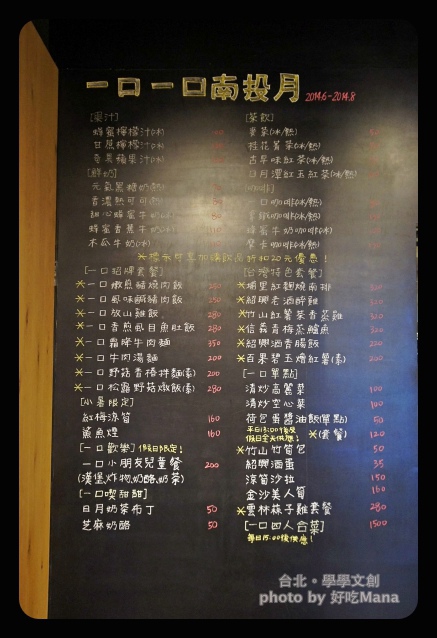 一口一口南投月 2014.6-2014.8
[果汁]
蜂蜜檸檬汁(冰)
甘蔗檸檬汁(冰)
奇異蘋果汁(冰)
[鮮奶]
元氣黑糖奶(熱)
香濃熱可可(熱)
甜心蜂蜜牛奶
蜂蜜香蕉牛奶(冰)
木瓜牛奶(冰)
[茶飲]
麥茶(冰/熱)
桂花釀茶(冰/熱)
古早味紅茶(冰/熱)
日月潭紅玉紅茶(冰/熱)
[咖啡]
一口咖啡(冰/熱)
拿鐵(冰/熱)
蜂蜜牛奶咖啡(冰/熱)
摩卡咖啡(冰/熱)
20元優惠!
[一口招牌套餐]
*一口嫩煎豬燒肉飯 280
*一口風味鹹豬肉飯 350
*一口放山雞飯 280
*一口香煎虱目魚肚飯 280
*一口霜降牛肉麵 350
*一口牛肉湯麵 200
*一口野菇青檸拌麵(素) 200
*一口松露野菇燉飯(素) 280
[小暑限定]
紅梅涼筍 160
鯊魚煙 160
[一口歡樂] 假日限定!
一口小朋友兒童餐 200
(漢堡.炸物.奶酪.奶茶)
[一口喫甜甜]
日月奶茶布丁 50
芝麻奶酪 50
[台灣特色套餐]
*埔里紅麴燒南排 320
*紹興老酒醉雞 320
*竹山紅薯茶香蒸雞 320
*信義青梅蒸鱸魚 320
*紹興酒香腸飯 220
*百果碧玉燴紅薯(素) 220
[一口單點]
清炒高麗菜 100
清炒空心菜 100
荷包蛋醬油飯(單點) 50
平日13:00後及
假日全天供應! *(套餐) 120
*竹山竹筍包 50
紹興酒蛋 35
涼筍沙拉 150
金沙美人筍 160
*雲林蔴子雞套餐 280
[一口四人合菜] 1500
每日15:00後供應!
台北。學學文創
photo by 好吃Mana